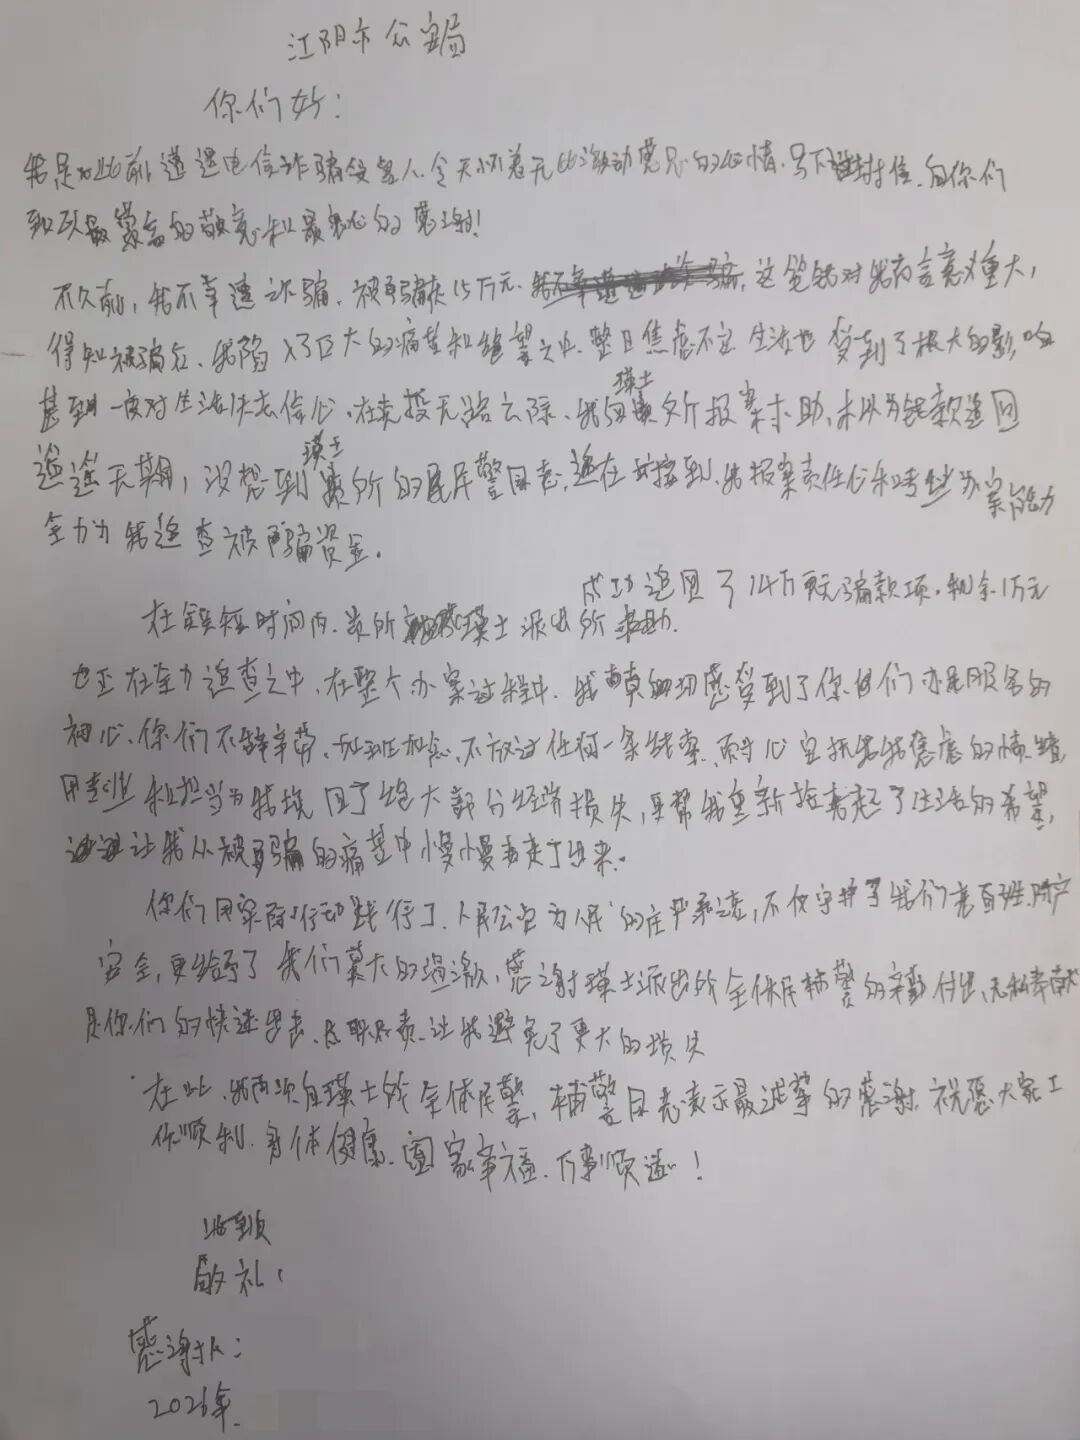 江阴市公安局
你们好：
我是此前遭遇电信诈骗受害人.今天怀着无比激动感恩的心情.写下这封信.向你们
致以最崇高的敬意和最衷心的感谢!
不久前,我不幸遭诈骗.被骗15万元.这笔钱对我而言意义重大,
得知被骗后、我陷入了巨大的痛苦和绝望之中.整日焦虑不安 生活也受到了极大的影响
甚至一度对生活失去信心.在走投无路之际、我向瑛士所报案求助、本以为钱款追回
遥遥无期,没想到瑛士所的民警同志,在接到我报案责任心和专业办案能力
全力为我追查被骗资金.
成功追回了14万元骗款项.剩余1万元
在短短时间内.瑛士派出所
也正在全力追查之中.在整个办案过程中.我真切感受到了你们为民服务的
初心.你们不辞辛劳、加班加点、不放过任何一条线索、耐心安抚我焦虑的情绪,
用专业和担当为我挽回了绝大部分经济损失,更帮我重新拾起了生活的希望,
让我从被骗的痛苦中慢慢走了出来.
你们用实际行动践行了.人民公安为人民的庄严承诺,不仅守护了我们老百姓财产
安全,更给予了我们莫大的温激,感谢瑛士派出所全体民辅警的辛勤付出、无私奉献
是你们的快速出击、尽职尽责、让我避免了更大的损失
在此、我再次向瑛士所全体民警,辅警同志表示最诚挚的感谢.祝愿大家工
作顺利.身体健康.阖家幸福.万事顺遂!
此致
敬礼!
感谢人:
2026年.